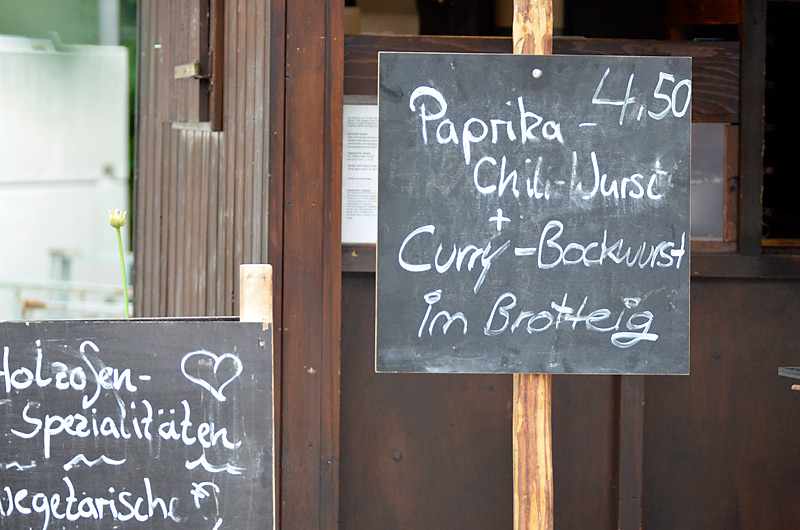 4,50
Paprika-
Chili-Wurst
+
Curry-Bockwurst
im Brotteig
Holzofen-
Spezialitäten
vegetarische